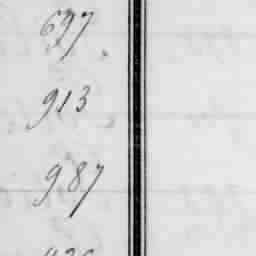 697
913
987